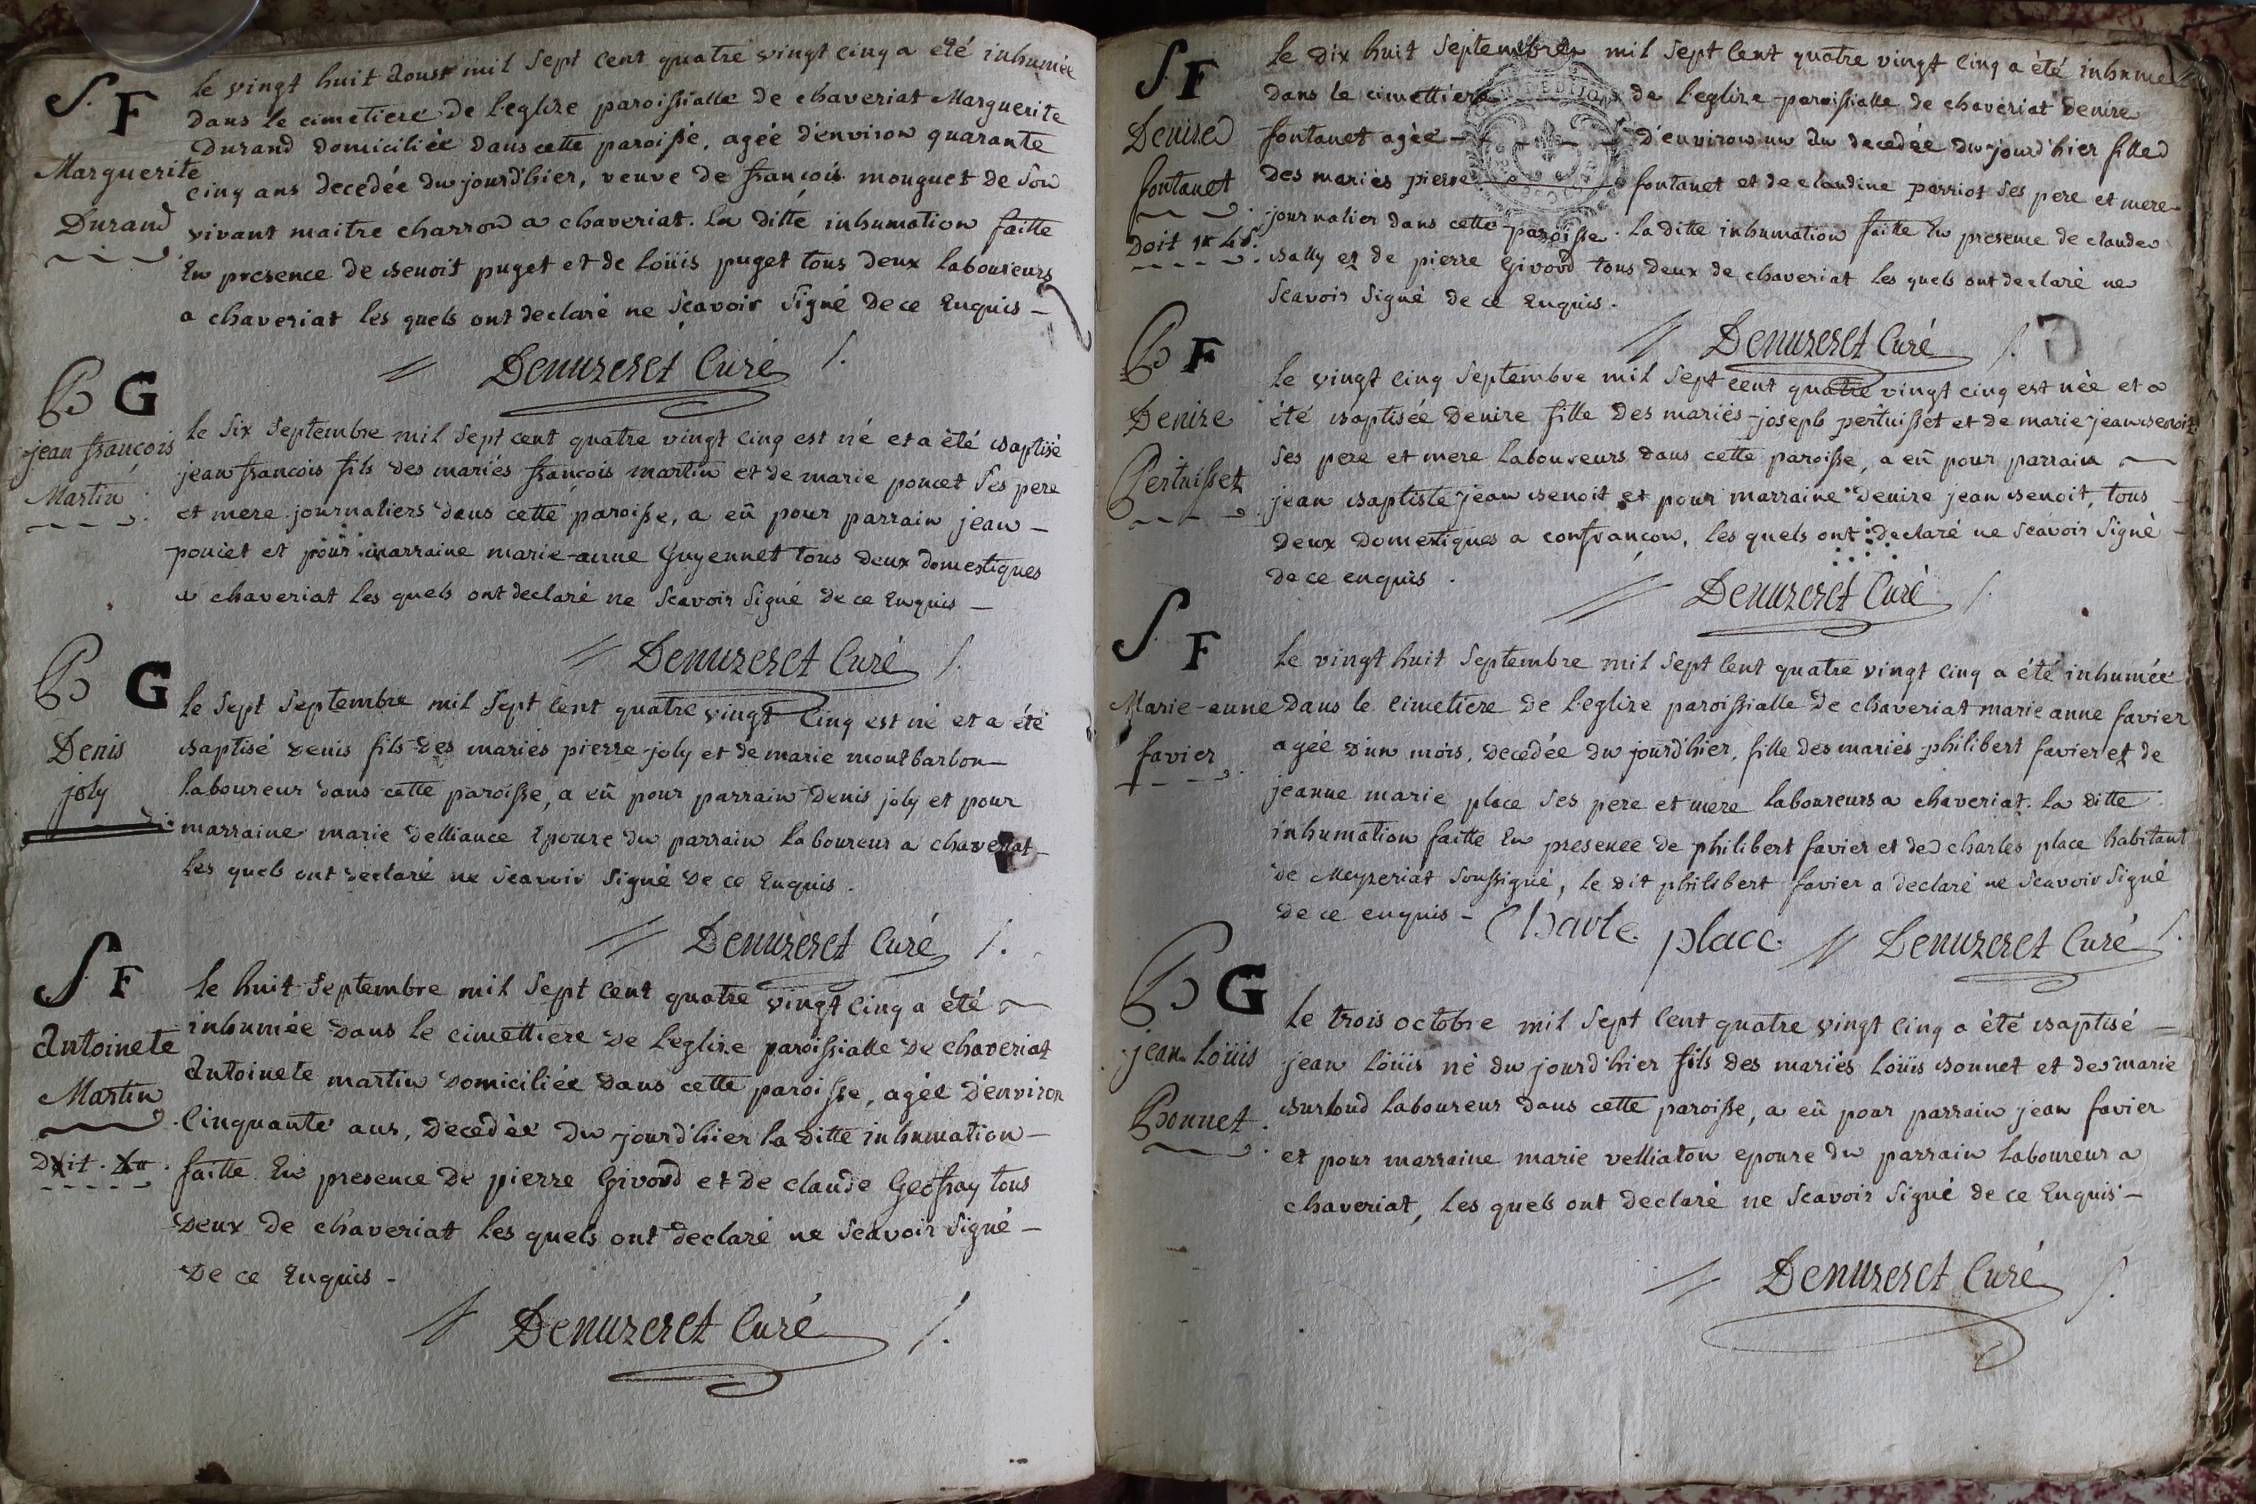 S. F
Marguerite
Durand
le vingt huit aoust mil sept cent quatre vingt cinq a été inhumée
dans le cimetiere de l'eglize paroissialle de chaveriat Marguerite
Durand domiciliée dans cette paroisse, agée d'environ quarante
cinq ans decedée du jourd'hier, veuve de françois mouguet de son
vivant maitre charron a chaveriat. la ditte inhumation faitte
En presence de benoit puget et de loüis puget tous deux laboureurs
a chaveriat les quels ont declaré ne sçavoir signé de ce Enquis –
Denuzeret Curé
B G
jean françois
Martin
le six septembre mil sept cent quatre vingt cinq est né et a été baptisé
jean françois fils des mariés françois martin et de marie poncet ses pere
et mere journaliers dans cette paroisse, a eû pour parrain jean –
poncet et pour marraine marie-anne Guyennet tous deux domestiques
a chaveriat les quels ont declaré ne scavoir signé de ce Enquis –
Denuzeret Curé
B G
Denis
joly
le sept septembre mil sept cent quatre vingt cinq est né et a été
baptisé denis fils des mariés pierre joly et de marie montbarbon –
laboureur dans cette paroisse, a eû pour parrain denis joly et pour
marraine marie delliance Epouze du parrain laboureur a chaveriat –
les quels ont declaré ne scavoir signé de ce Enquis.
Denuzeret Curé
S. F
Antoinete
Martin
Doit
le huit septembre mil sept cent quatre vingt cinq a été
inhumée dans le cimettiere de l'eglize paroissialle de chaveriat
Antoinete martin domiciliée dans cette paroisse, agée d'environ
Cinquante ans, decedée du jourd'hier la ditte inhumation –
faitte En presence de pierre Givord et de claude Geoffray tous
deux de chaveriat les quels ont declaré ne scavoir signé –
de ce Enquis –
Denuzeret Curé
S. F
Denize
fontanet
Doit 1# 4s.
le dix huit septembre mil sept cent quatre vingt cinq a été inhumée
dans le cimettiere de l'eglize paroissialle de chaveriat denize
fontanet agée – d'environ un an decedée du jourd'hier fille
des mariés pierre fontanet et de claudine perriot ses pere et mere
journalier dans cette paroisse. la ditte inhumation faitte En presence de claude
bally et de pierre Givord tous deux de chaveriat les quels ont declaré ne
scavoir signé de ce Enquis.
Denuzeret Curé
B F
Denize
Pertuisset
le vingt cinq septembre mil sept cent quatre vingt cinq est née et a
été baptisée denize fille des mariés joseph pertuisset et de marie jean benoit
ses pere et mere laboureurs dans cette paroisse, a eû pour parrain
jean baptiste jean benoit et pour marraine denize jean benoit, tous
deux domestiques a confrançon, les quels ont declaré ne scavoir signé –
de ce enquis.
Denuzeret Curé
S. F
Marie-anne
favier
le vingt huit septembre mil sept cent quatre vingt cinq a été inhumée
dans le cimetiere de l'eglize paroissialle de chaveriat marie anne favier
agée d'un mois, decedée du jourd'hier, fille des mariés philibert favier et de
jeanne marie place ses pere et mere laboureurs a chaveriat. la ditte
inhumation faitte En presence de philibert favier et de charles place habitant
de Meyzeriat soussigné, le dit philibert favier a declaré ne scavoir signé
de ce enquis –
Charle place
Denuzeret Curé
B G
jean Loüis
Bonnet.
le trois octobre mil sept cent quatre vingt cinq a été baptisé –
jean loüis né du jourd'hier fils des mariés loüis bonnet et de marie
burtoud laboureur dans cette paroisse, a eû pour parrain jean favier
et pour marraine marie velliaton epouze du parrain laboureur a
chaveriat, les quels ont declaré ne scavoir signé de ce Enquis –
Denuzeret Curé